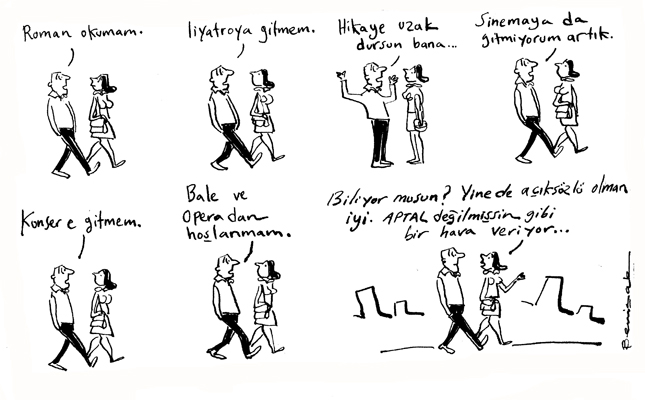 Roman okumam.
tiyatroya gitmem.
Hikaye uzak
dursun bana...
Sinemaya da
gitmiyorum artık.
Konsere gitmem.
Bale ve
Operadan
hoşlanmam.
Biliyor musun? Yine de açıksözlü olman
iyi. APTAL değilmişsin gibi
bir hava veriyor...